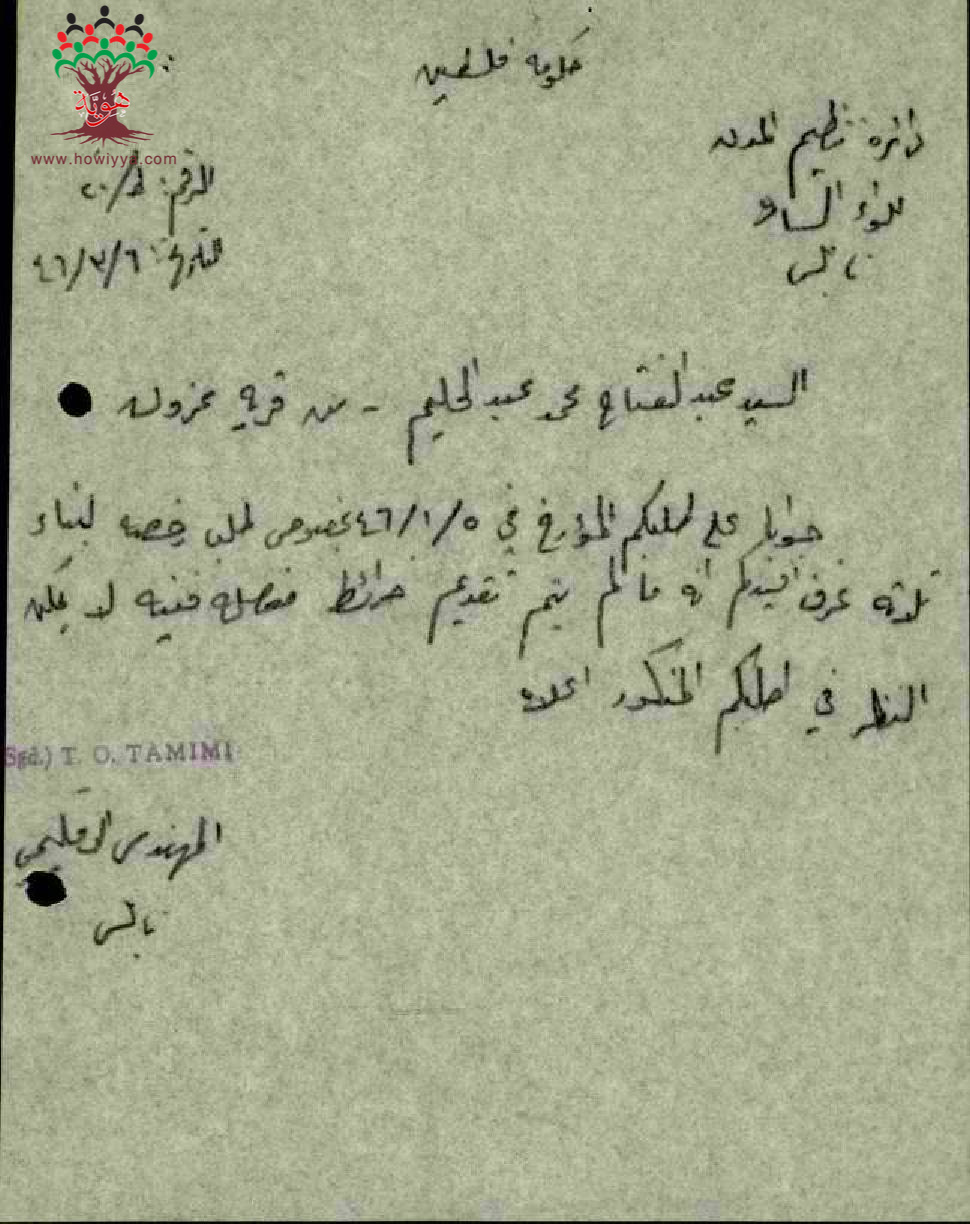 حكومة فلسطين
هويّة
www.howiyya.com
دائرة تنظيم المدن
لواء السامرة
نابلس
الرقم: ط/٢٠
التاريخ: ٤٦/٣/٦
السيد عبد الفتاح محمد عبد الحليم - من قرية عزون
جوابا على طلبكم المؤرخ في ٤٦/١/٥ بخصوص طلب رخصة لبناء
ثلاثة غرف افيدكم انه ما لم يتم تقديم خرائط مفصله فنيه لا يمكن
النظر في طلبكم المذكور اعلاه
Sgd.) T. O. TAMIMI
المهندس الاقليمي
نابلس